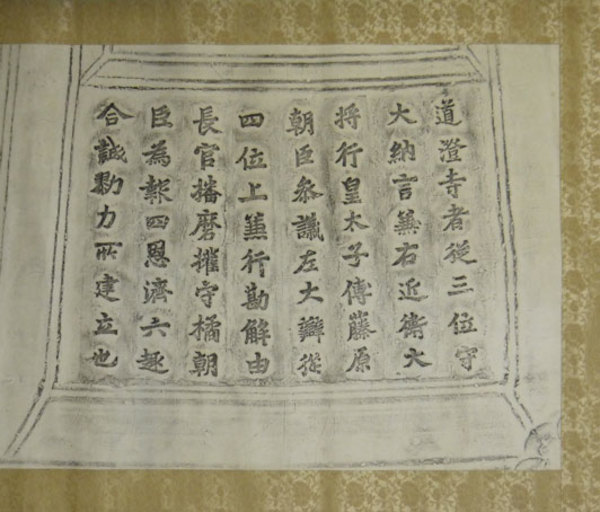 道澄寺者從三位守
大納言兼右近衛大
将行皇太子傅藤原
朝臣参議左大辯從
四位上兼行勘解由
長官播磨權守橘朝
臣為報四恩濟六趣
合誠勠力所建立也